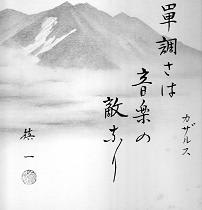 單調さは
音楽の
敵なり
カザルス
慎一